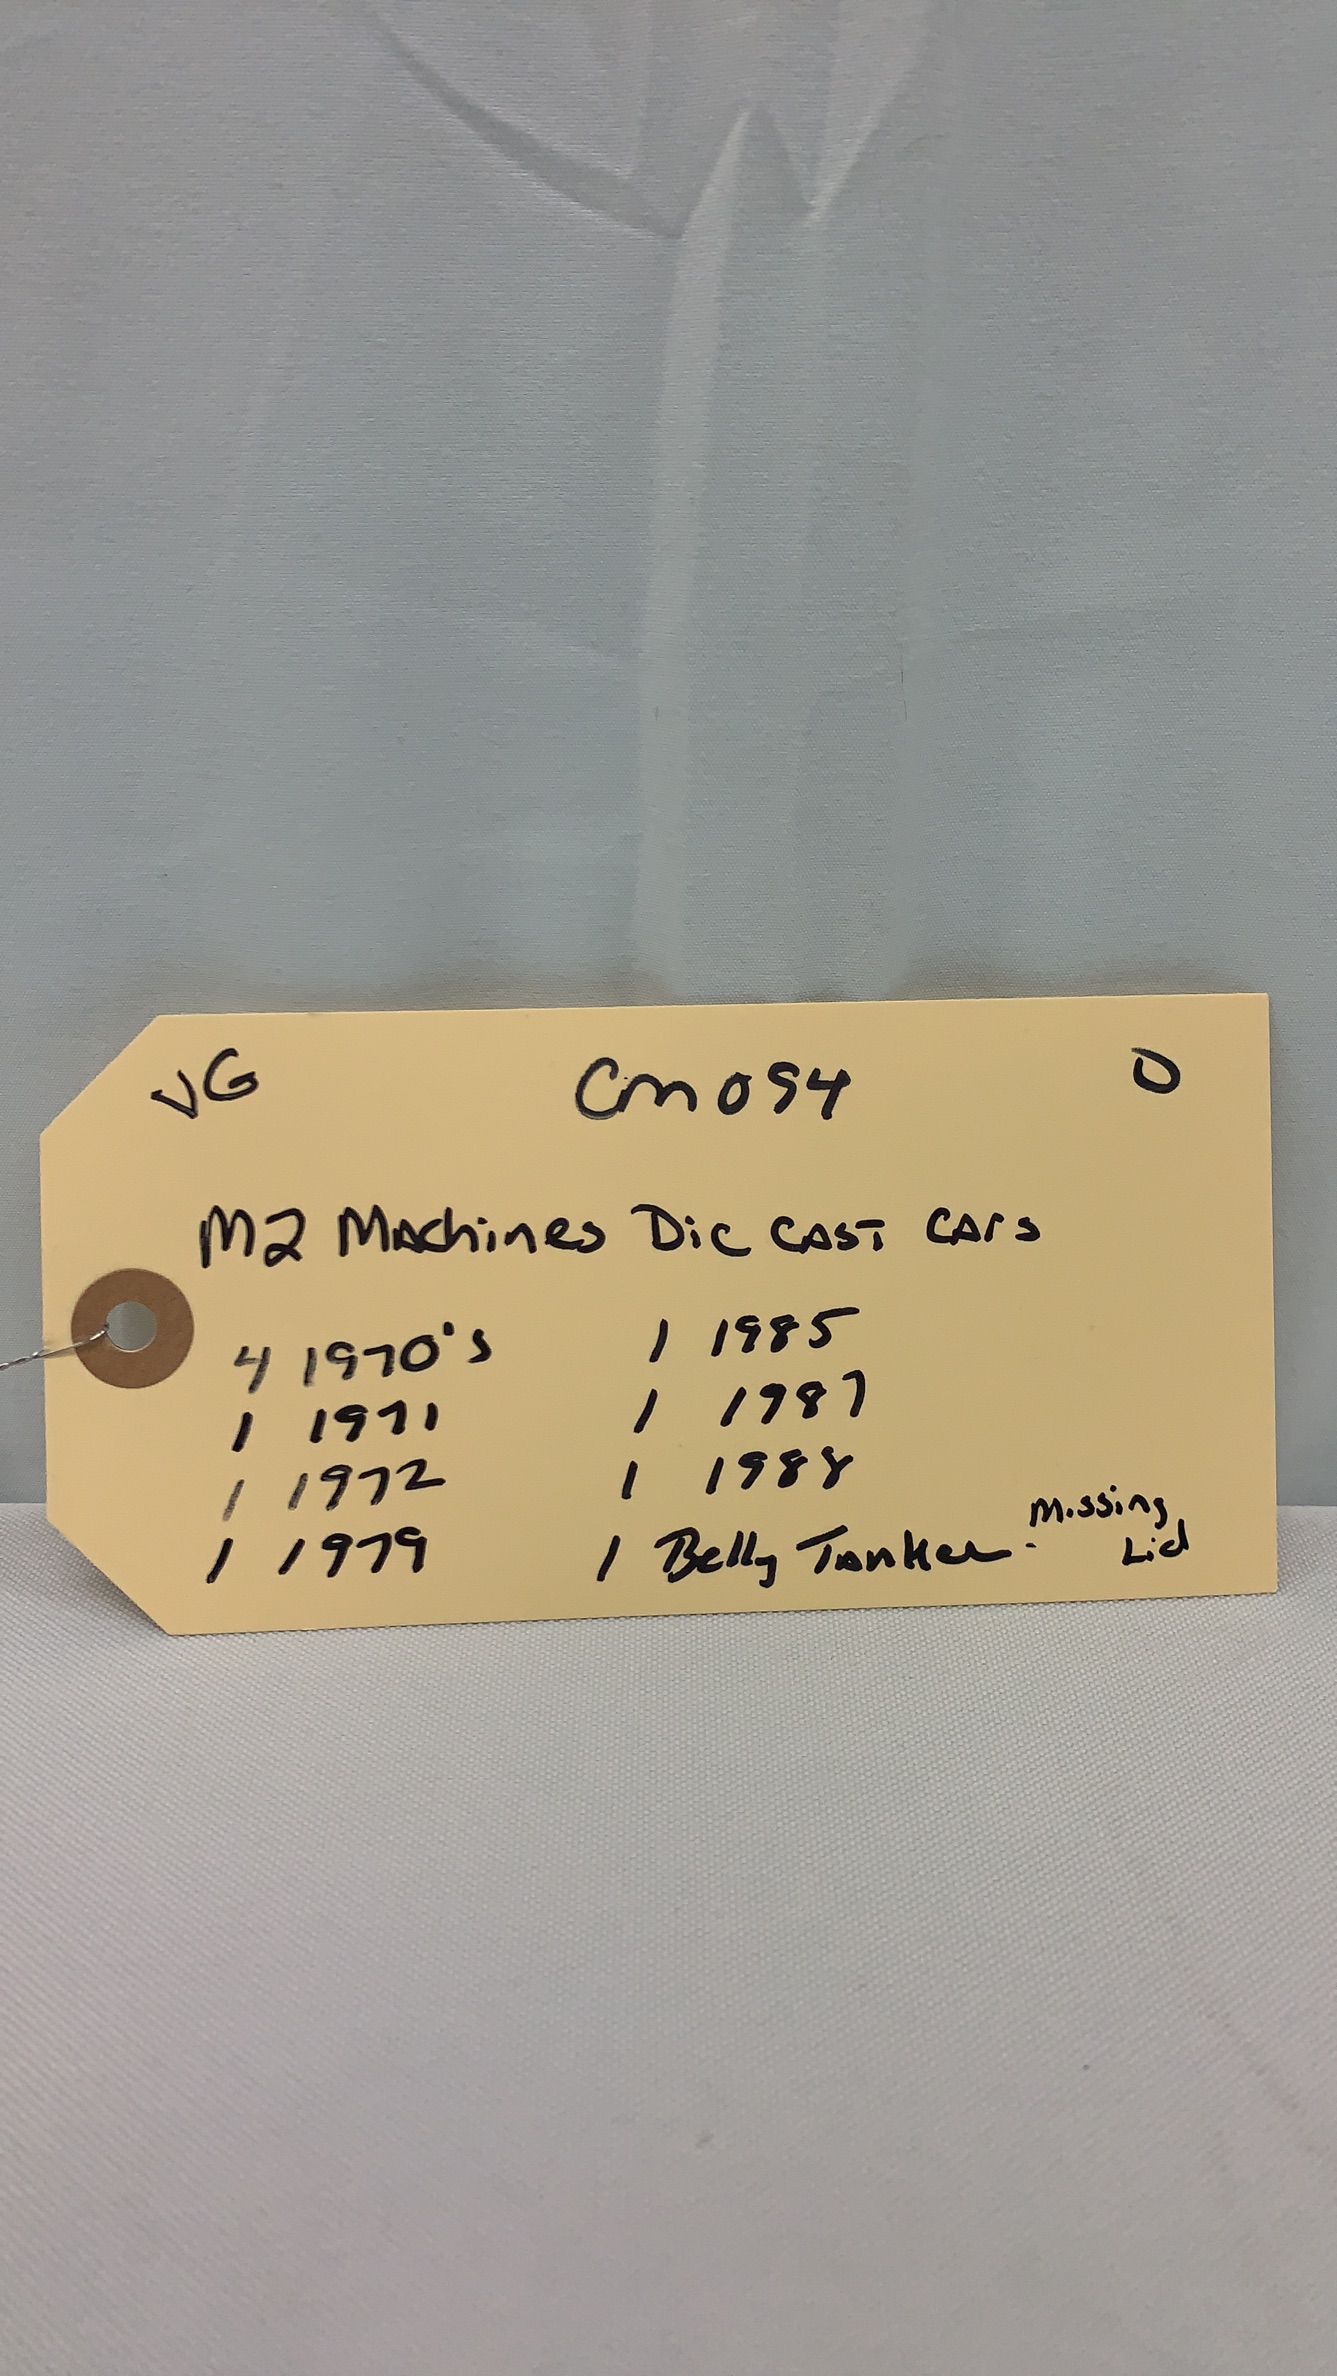 VG Cm094 D
M2 Machines Die Cast Cars
4 1970's 1 1985
1 1971 1 1987
1 1972 1 1988
1 1979 1 Belly Tanker - Missing
Lid